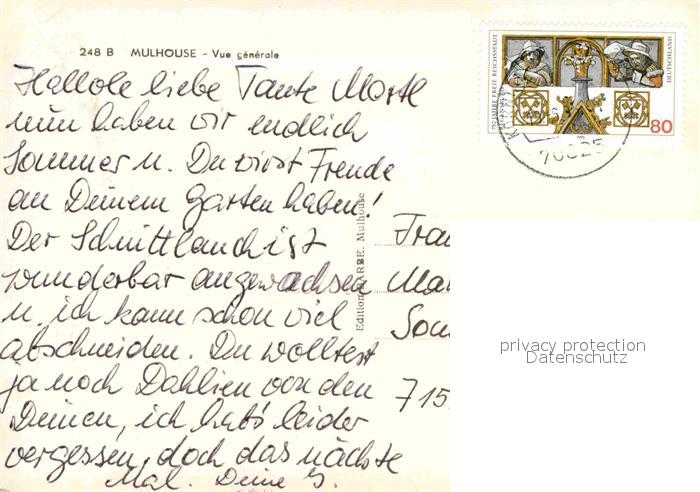 248 B MULHOUSE – Vue générale
Hallole liebe Tante Martl
nun haben wir endlich
Sommer u. Du wirst Freude
an Deinem Garten haben!
Der Schnittlauch ist
wunderbar angewachsen
u. ich kann schon viel
abschneiden. Du wolltest
ja noch Dahlien von den
Deinen, ich hab's leider
vergessen, doch das nächste
Mal. Deine G.
Mulhouse
750 JAHRE FREIE REICHSSTADT
REGENSBURG
DEUTSCHLAND
1995
80
Frau
Mar
Son
715
privacy protection
Datenschutz